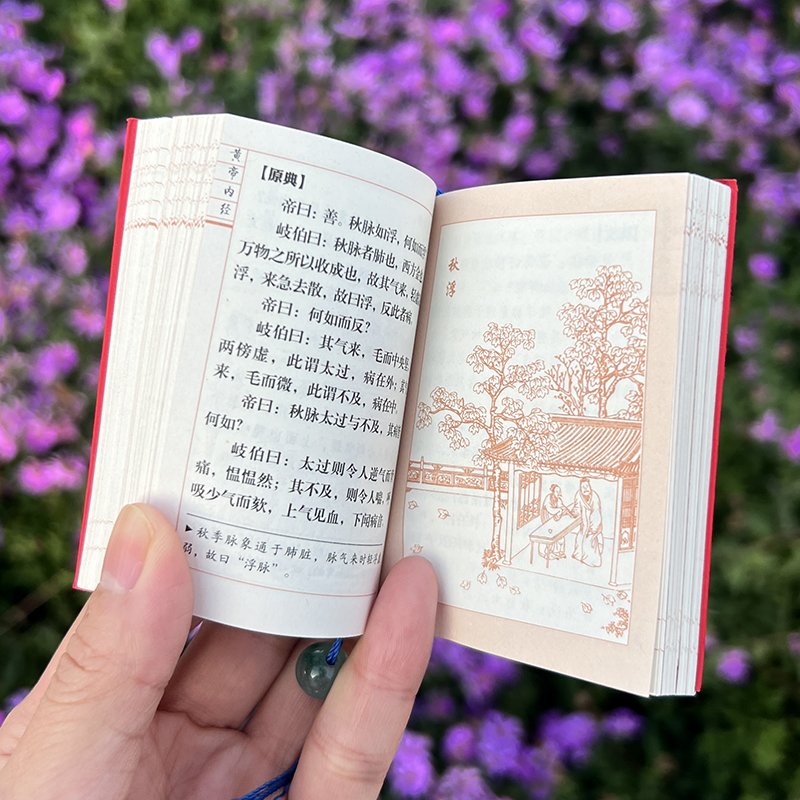 黄帝内经
【原典】
帝曰：善。秋脉如浮，何如而浮
岐伯曰：秋脉者肺也，西方金也
万物之所以收成也，故其气来，轻虚
浮，来急去散，故曰浮，反此者病。
帝曰：何如而反？
岐伯曰：其气来，毛而中央坚
两傍虚，此谓太过，病在外；其
来，毛而微，此谓不及，病在中。
帝曰：秋脉太过与不及，其病皆
何如？
岐伯曰：太过则令人逆气而
痛，愠愠然；其不及，则令人喘，
吸少气而欬，上气见血，下闻病音。
▶秋季脉象通于肺脏，脉气来时轻浮
弱，故曰“浮脉”。
秋浮